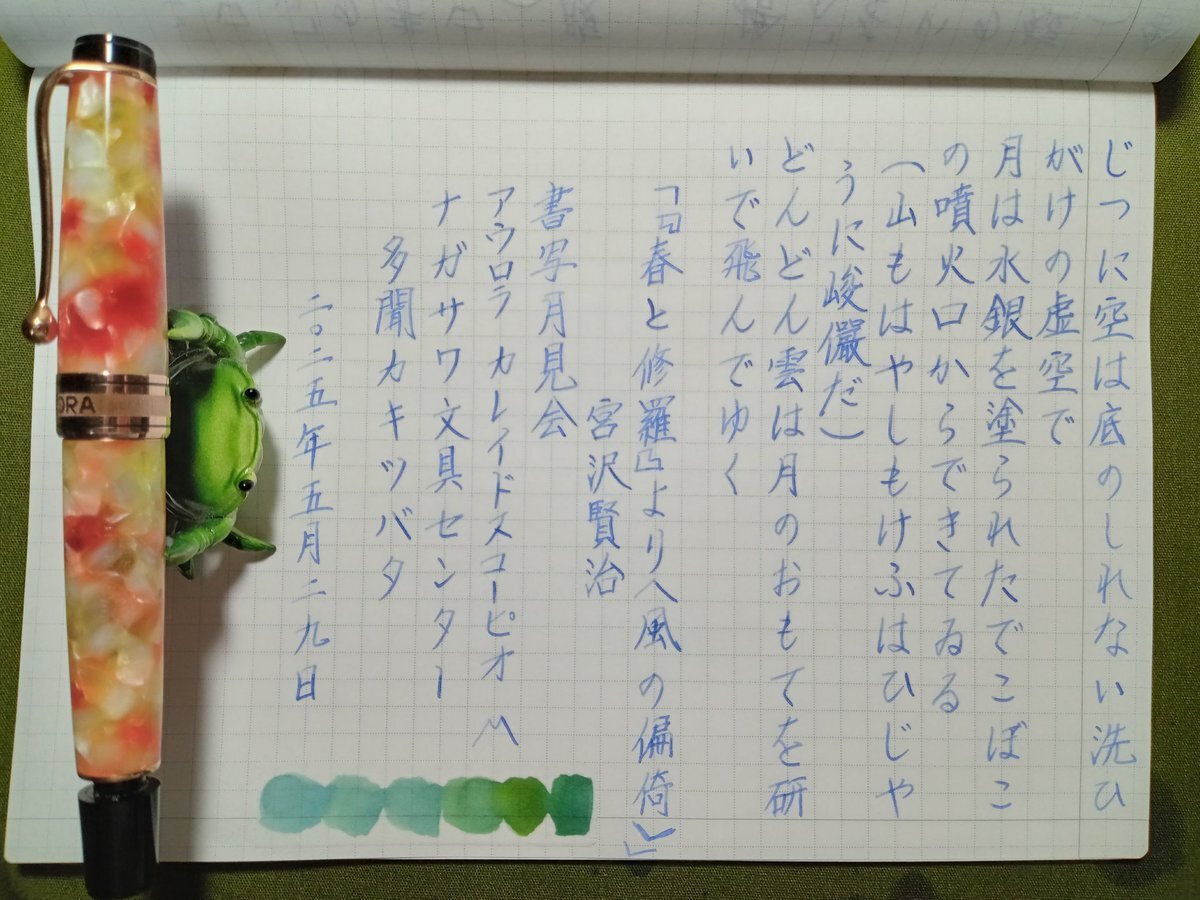 じつに空は底のしれない洗ひ
がけの虚空で
月は水銀を塗られたでこぼこ
の噴火口からできてゐる
(山もはやしもけふはひじや
うに峻儼だ)
どんどん雲は月のおもてを研
いで飛んでゆく
「『春と修羅』より〈風の偏倚〉」
宮沢賢治
書写月見会
アウロラ カレイドスコーピオ M
ナガサワ文具センター
多聞カキツバタ
二〇二五年五月二九日
ORA